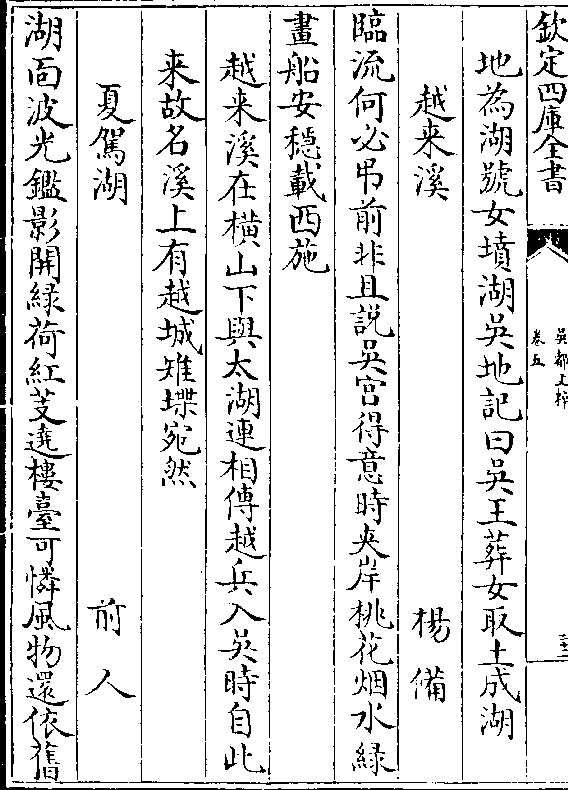 欽定四庫全書
吳都文粹
卷五
三十二
地為湖號女墳湖吳地記曰吳王葬女取土成湖
越来溪　楊備
臨流何必弔前非且説吳宫得意時夹岸桃花烟水緑
畫船安穏載西施
越来溪在横山下與太湖連相傳越兵入吳時自此
来故名溪上有越城雉堞宛然
夏駕湖　前人
湖面波光鑑影開緑荷紅芰遶樓臺可憐風物還依舊